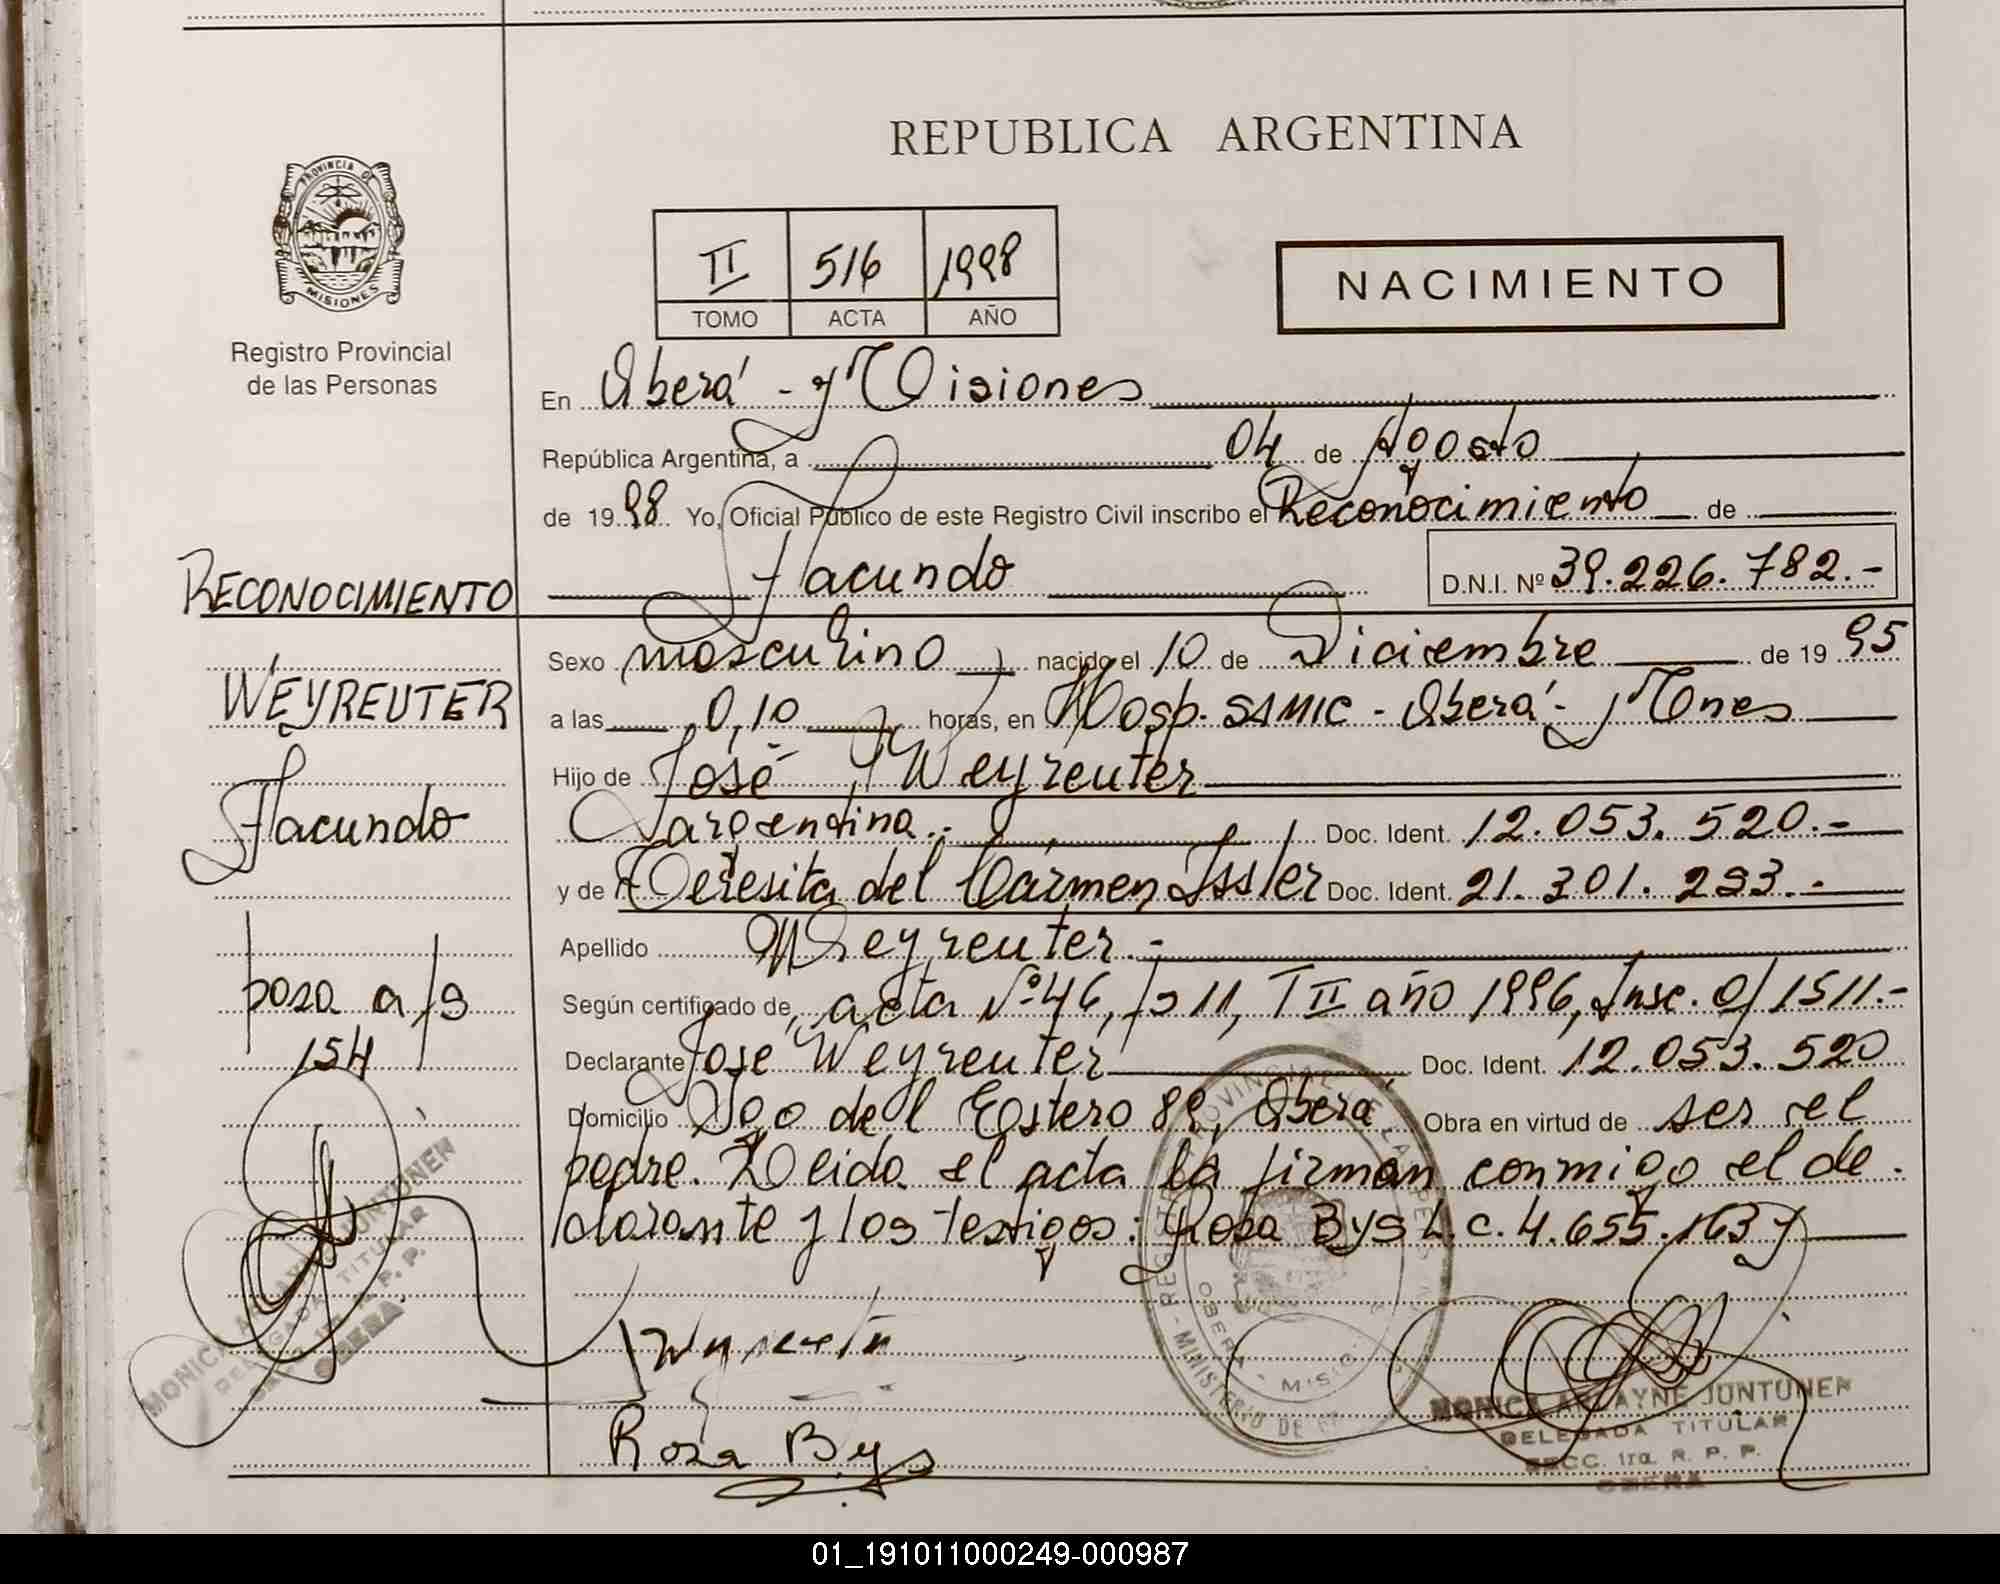 REPUBLICA ARGENTINA
PROVINCIA DE
MISIONES
Registro Provincial
de las Personas
II 516 1998
TOMO ACTA AÑO
NACIMIENTO
En Oberá - Misiones
República Argentina, a 04 de Agosto
de 1998 Yo, Oficial Público de este Registro Civil inscribo el Reconocimiento de
Facundo D.N.I. Nº 39.226.782.-
RECONOCIMIENTO
WEYREUTER
Facundo
pasa a fs
154
Sexo masculino, nacido el 10 de Diciembre de 1995
a las 0,10 horas, en Hosp. SAMIC - Oberá - Mnes
Hijo de José Weyreuter
argentino.- Doc. Ident. 12.053.520.-
y de Teresita del Carmen Issler Doc. Ident. 21.301.293.-
Apellido Weyreuter.-
Según certificado de, acta Nº 46, fs 11, T II año 1996, Insc. 0/1511.-
Declarante José Weyreuter Doc. Ident. 12.053.520
Domicilio Sgo del Estero 89, Oberá Obra en virtud de ser el
padre. Leida el acta la firman conmigo el de-
clarante y los testigos: Rosa Bys L.C. 4.655.163 y
Rosa Bys
MONICA JUNTUNEN
DELEGADA TITULAR
SECC. 1ra. R. P. P.
OBERA
MONICA AYNE JUNTUNEN
DELEGADA TITULAR
SECC. 1ra. R. P. P.
OBERA
01_191011000249-000987